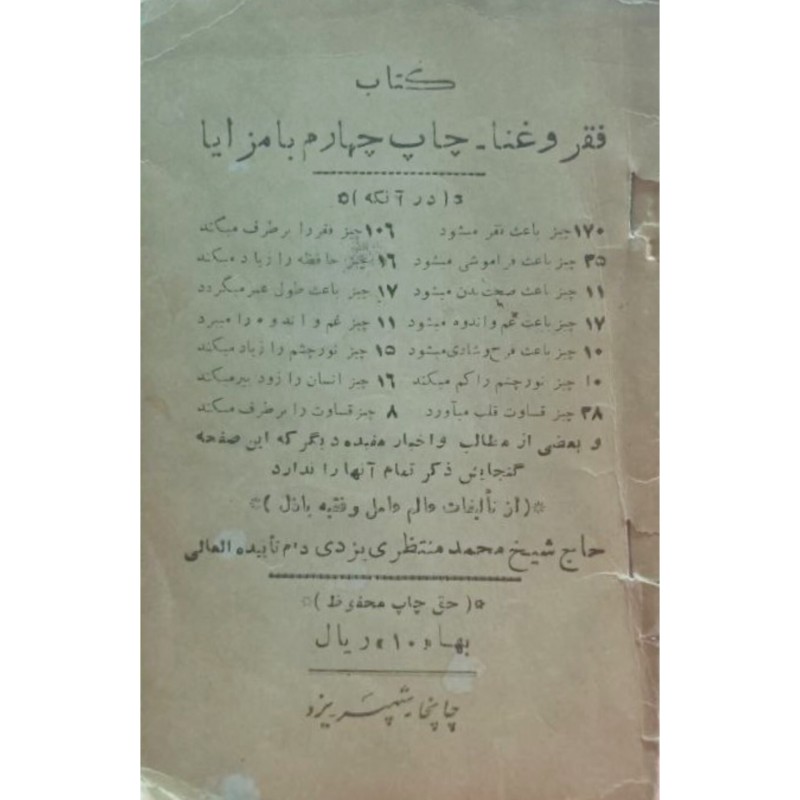 کتاب
فقر و غنا - چاپ چهارم با مزایا
(در آنکه)
۱۷۰ چیز باعث فقر میشود ۱۰۶ چیز فقر را بر طرف میکند
۳۵ چیز باعث فراموشی میشود ۱۶ چیز حافظه را زیاد میکند
۱۱ چیز باعث صحت بدن میشود ۱۷ چیز باعث طول عمر میگردد
۱۷ چیز باعث غم و اندوه میشود ۱۱ چیز غم و اندوه را میبرد
۱۰ چیز باعث فرح و شادی میشود ۱۵ چیز نور چشم را زیاد میکند
۱۰ چیز نور چشم را کم میکند ۱۶ چیز انسان را زود پیر میکند
۳۸ چیز قساوت قلب میآورد ۸ چیز قساوت را بر طرف میکند
و بعضی از مطالب و اخبار مفیده دیگر که این صفحه
گنجایش ذکر تمام آنها را ندارد
*(از تألیفات عالم عامل و فقیه باذل)*
حاج شیخ محمد منتظری یزدی دام تأییده العالی
*(حق چاپ محفوظ)*
بهاء «۱۰» ریال
چاپخانه شهپر یزد